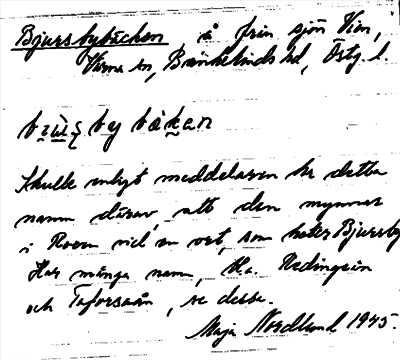 Bjursbybäcken å från sjön Vin,
Virma sn, Bankekinds hd, Östg. l.
by bäkan
Skulle enligt meddelaren ha detta
namn därav, att den mynnar
i Roen vid en ort, som heter Bjursby
Har många namn, bl.a. Hedingeån
och Taforsaån, se dessa.
Maja Nordlund 1945.